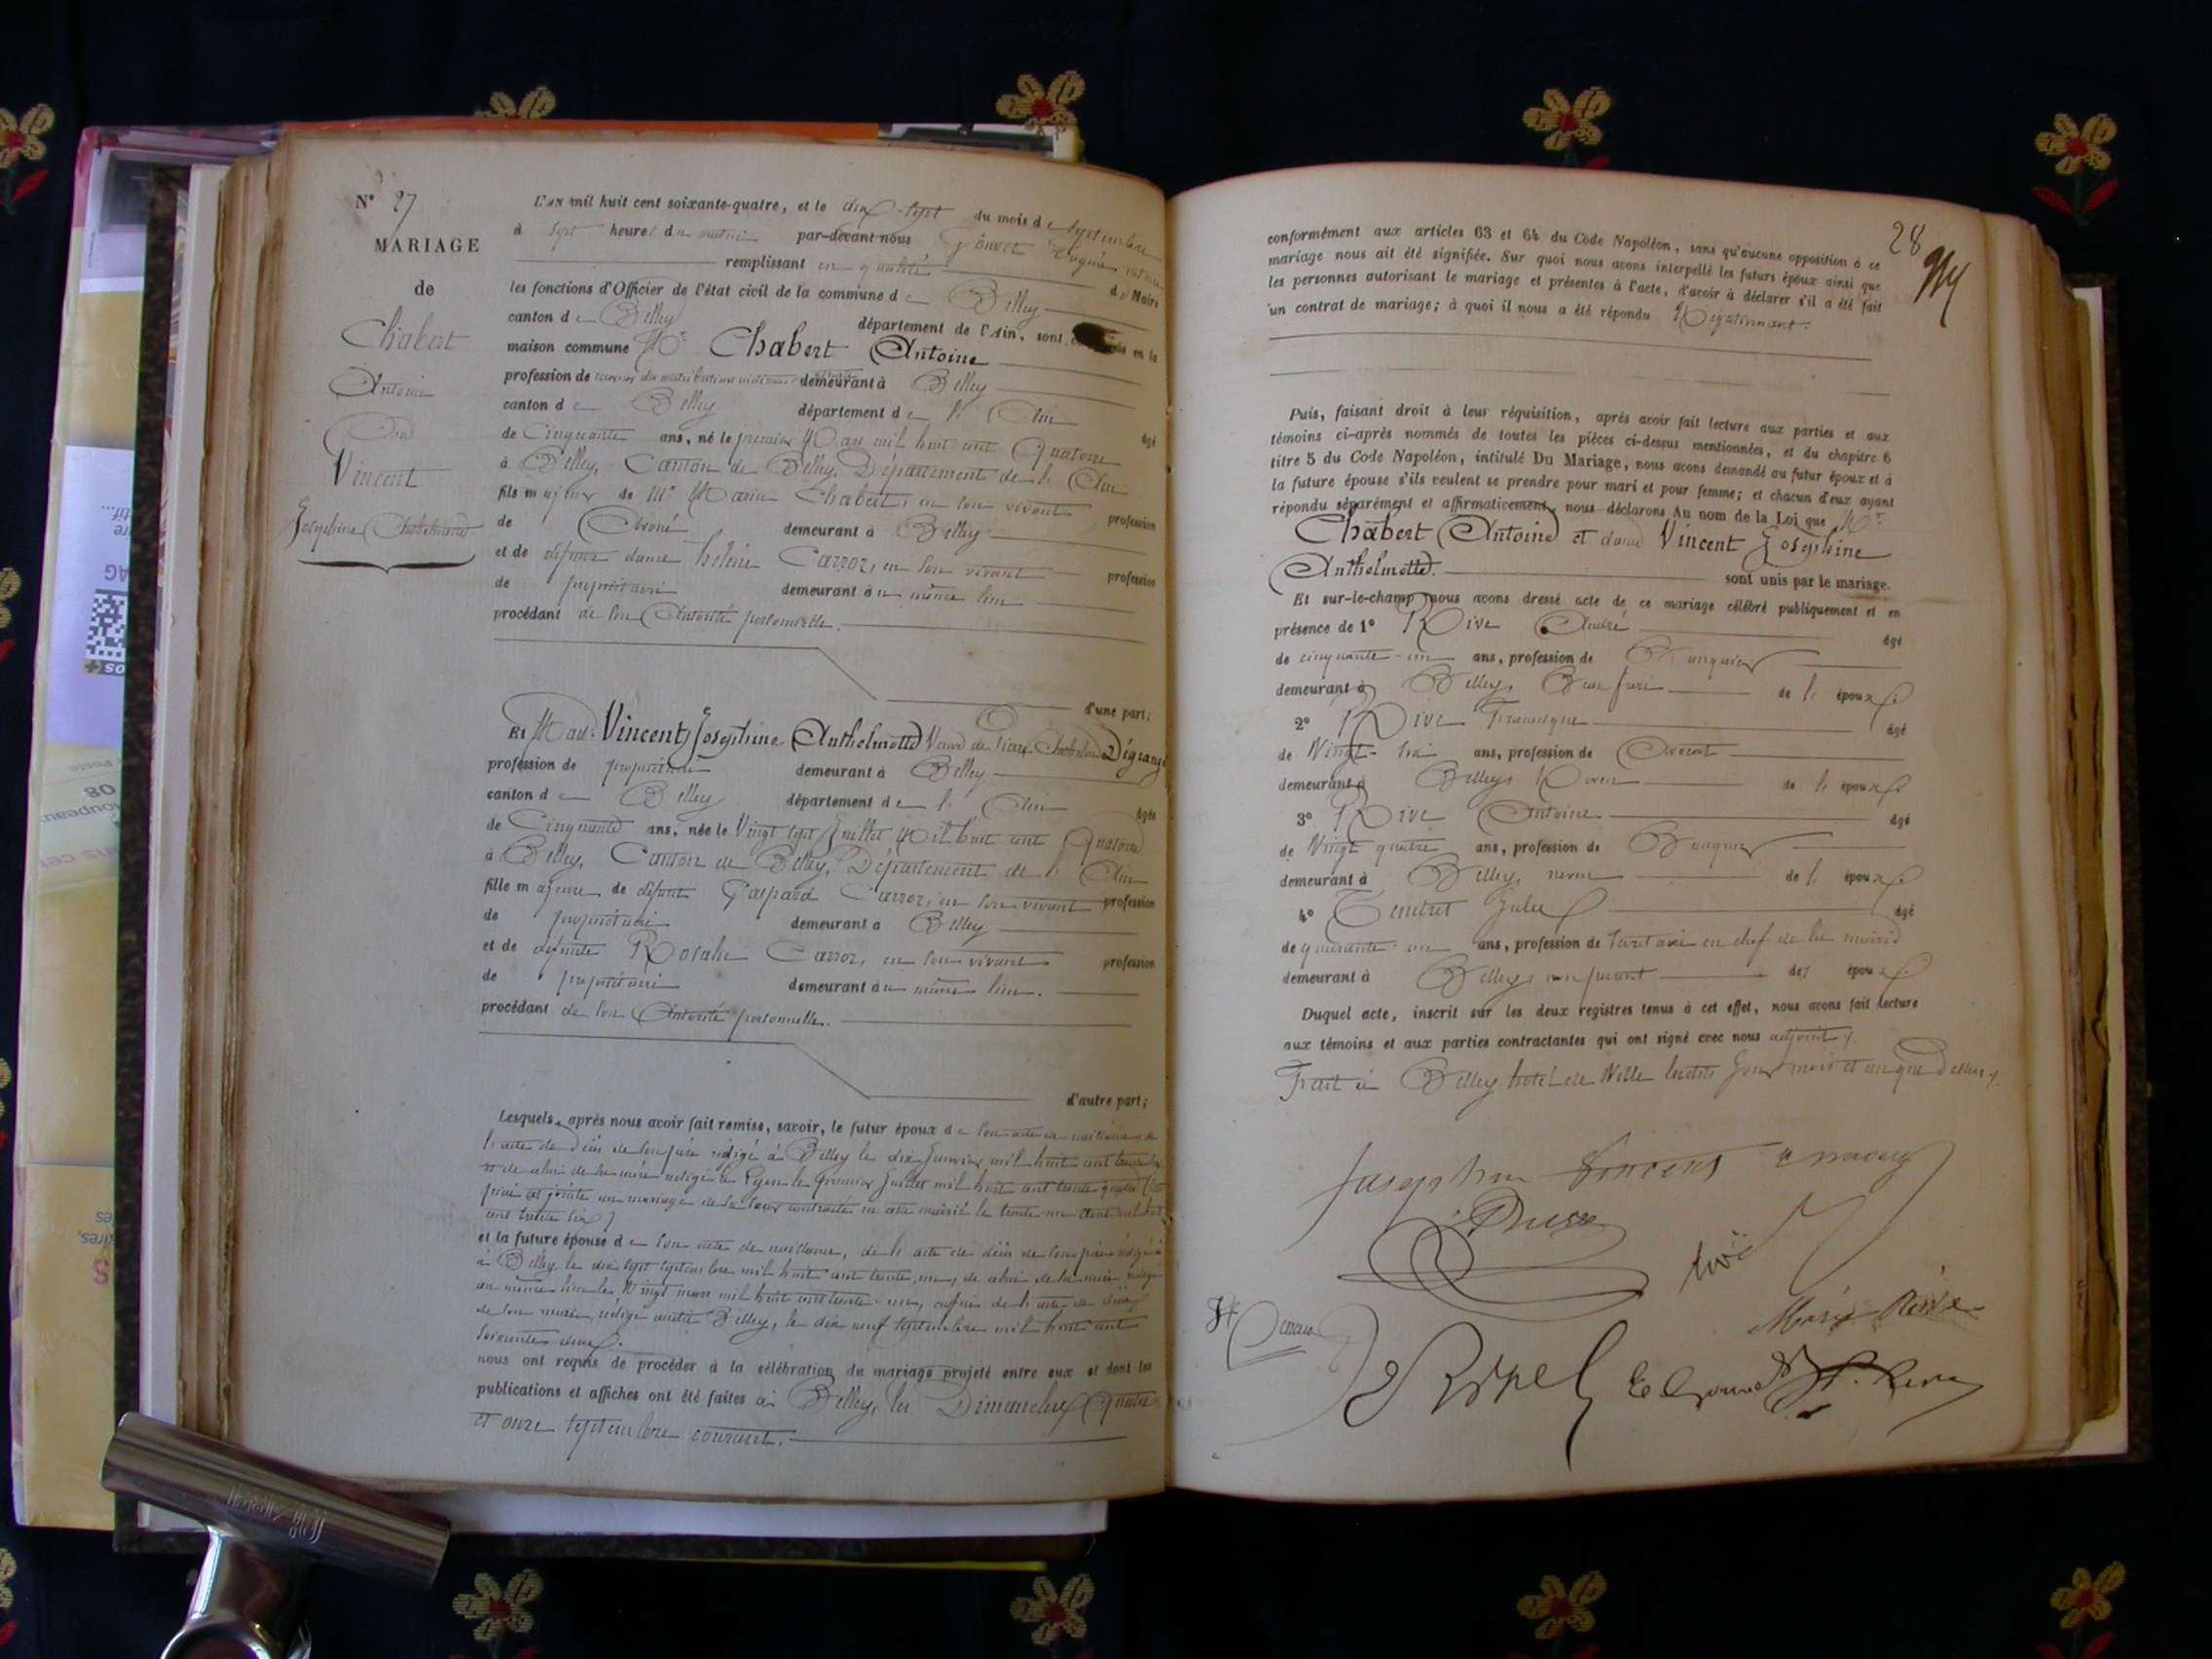 N° 27
MARIAGE
de
Chabert
Antoine
Et
Vincent
Joséphine Anthelmette
L'an mil huit cent soixante-quatre, et le dix-sept du mois de septembre
à sept heures du matin par-devant nous
remplissant en qualité de Maire
les fonctions d'Officier de l'état civil de la commune de Belley
canton de Belley département de l'Ain, sont en la
maison commune Mr Chabert Antoine
profession de demeurant à Belley
canton de Belley département de l'Ain âgé
de Cinquante ans, né le premier Mars mil huit cent Quatorze
à Belley, Canton de Belley, Département de l'Ain
fils majeur de Mr Marin Chabert, en son vivant profession
de Avoué demeurant à Belley
et de défunte dame helène Carroz, en son vivant profession
de propriétaire demeurant au même lieu
procédant de son Autorité personnelle.
d'une part;
Et Mad. Vincent Joséphine Anthelmette Veuve de Dégrange
profession de propriétaire demeurant à Belley
canton de Belley département de l'Ain âgée
de Cinquante ans, née le Vingt sept Juillet Mil huit cent Quatorze
à Belley, Canton de Belley, Département de l'Ain
fille majeure de défunt Gaspard Carroz, en son vivant profession
de propriétaire demeurant à Belley
et de défunte Rosalie Carroz, en son vivant profession
de propriétaire demeurant au même lieu.
procédant de son Autorité personnelle.
d'autre part;
Lesquels, après nous avoir fait remise, savoir, le futur époux de son acte de naissance, de
l'acte de décès de son père rédigé à Belley le dix Janvier mil huit cent
et de celui de sa mère rédigé à Lyon le premier Juillet mil huit cent trente quatre
pièce est jointe au mariage de sa sœur contracté en cette mairie le trente un Août mil huit
cent trente six)
et la future épouse de son acte de naissance, de l'acte de décès de son père rédigé
à Belley le dix sept septembre mil huit cent trente, un, de celui de sa mère rédigé
au même lieu le Vingt mars mil huit cent trente-un, enfin de l'acte de décès
de son mari, rédigé audit Belley, le dix neuf septembre mil huit cent
soixante deux.
nous ont requis de procéder à la célébration du mariage projeté entre eux et dont les
publications et affiches ont été faites à Belley, les Dimanches Quatre
et onze septembre courant.
28
conformément aux articles 63 et 64 du Code Napoléon, sans qu'aucune opposition à ce
mariage nous ait été signifiée. Sur quoi nous avons interpellé les futurs époux ainsi que
les personnes autorisant le mariage et présentes à l'acte, d'avoir à déclarer s'il a été fait
un contrat de mariage; à quoi il nous a été répondu Négativement.
Puis, faisant droit à leur réquisition, après avoir fait lecture aux parties et aux
témoins ci-après nommés de toutes les pièces ci-dessus mentionnées, et du chapitre 6
titre 5 du Code Napoléon, intitulé Du Mariage, nous avons demandé au futur époux et à
la future épouse s'ils veulent se prendre pour mari et pour femme; et chacun d'eux ayant
répondu séparément et affirmativement, nous déclarons Au nom de la Loi que Mr
Chabert Antoine et dame Vincent Joséphine
Anthelmette. sont unis par le mariage.
Et sur-le-champ nous avons dressé acte de ce mariage célébré publiquement et en
présence de 1° Rive André âgé
de cinquante-un ans, profession de Banquier
demeurant à Belley, Beau frère de l'époux.
2° Rive Francisque âgé
de Vingt-six ans, profession de Avocat
demeurant à Belley, Neveu de l'époux.
3° Rive Antoine âgé
de Vingt quatre ans, profession de Banquier
demeurant à Belley, neveu de l'époux.
4° Tendret Jules âgé
de quarante-un ans, profession de Secrétaire en chef de la mairie
demeurant à Belley, non parent des époux.
Duquel acte, inscrit sur les deux registres tenus à cet effet, nous avons fait lecture
aux témoins et aux parties contractantes qui ont signé avec nous adjoint.
Fait à Belley hôtel de Ville lesdits jour mois et an que dessus.
Josephine Vincent
Rive